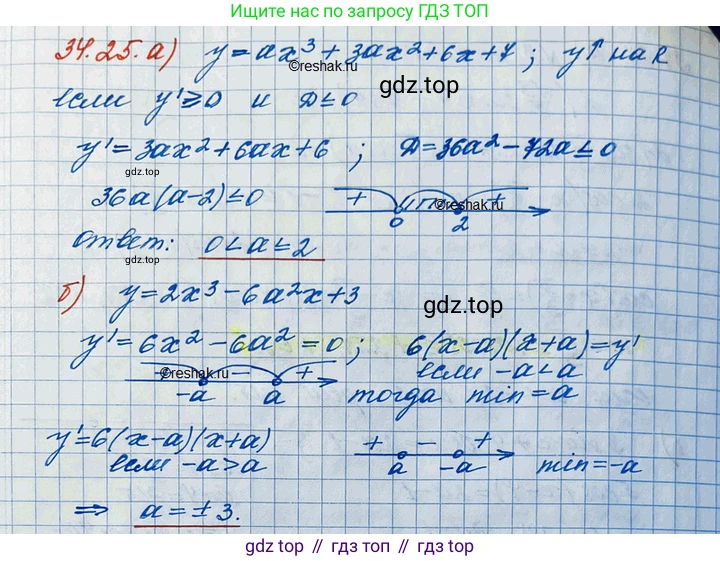 Ищите нас по запросу ГДЗ ТОП
34.25. а) y=ax³+3ax²+6x+7; y↑ на R
©reshak.ru
gdz.top
если y'≥0 и D≤0
y'=3ax²+6ax+6; D=36a²-72a≤0
gdz.top
36a(a-2)≤0 + + ©reshak.ru
0 2
ответ: 0<a≤2
gdz.top
б) y=2x³-6a²x+3
gdz.top
y'=6x²-6a²=0; 6(x-a)(x+a)=y'
если -a<a
©reshak.ru - +
-a a тогда min=a
y'=6(x-a)(x+a) + - +
если -a>a a -a min=-a
⇒ a=±3.
gdz.top // гдз топ // gdz.top